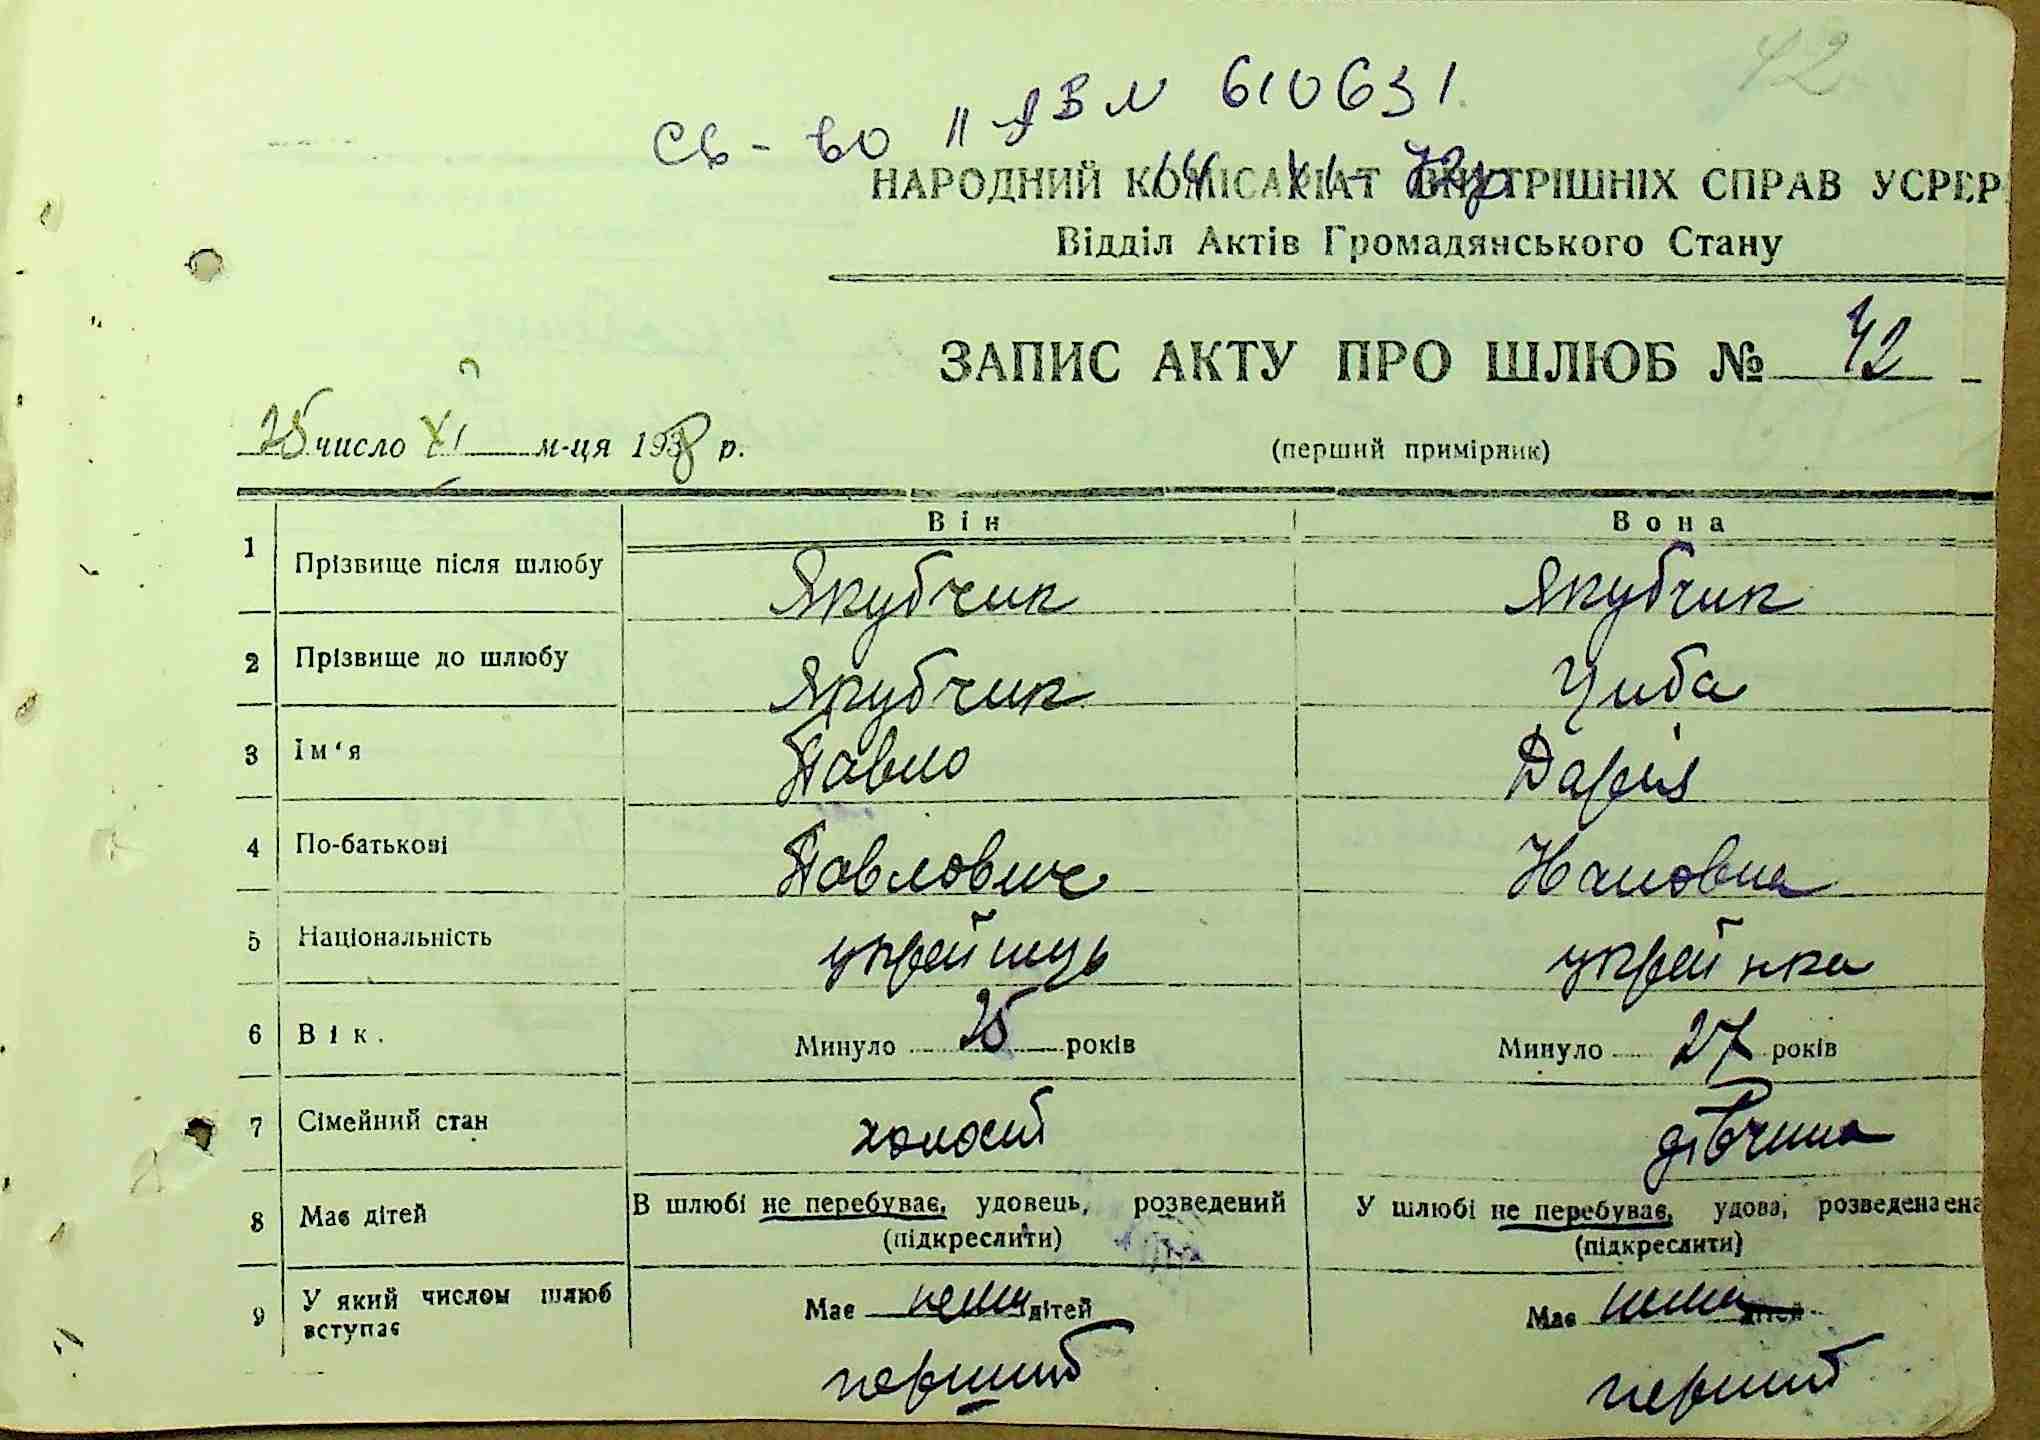 42
Св-во II АВ № 610631
14 XI - 72р
НАРОДНИЙ КОМІСАРІАТ ВНУТРІШНІХ СПРАВ УСРР
Відділ Актів Громадянського Стану
ЗАПИС АКТУ ПРО ШЛЮБ № 42
25 число XI м-ця 1938 р.
(перший примірник)
Він Вона
1 Прізвище після шлюбу Якубчик Якубчик
2 Прізвище до шлюбу Якубчик Циба
3 Ім‘я Павло Дарія
4 По-батькові Павлович
5 Національність українець українка
6 Вік. Минуло 25 років Минуло 27 років
7 Сімейний стан холостий дівчина
8 Має дітей В шлюбі не перебуває, удовець, розведений У шлюбі не перебуває, удова, розведена
(підкреслити) (підкреслити)
9 У який числом шлюб вступає Має нема дітей Має нема дітей
перший перший